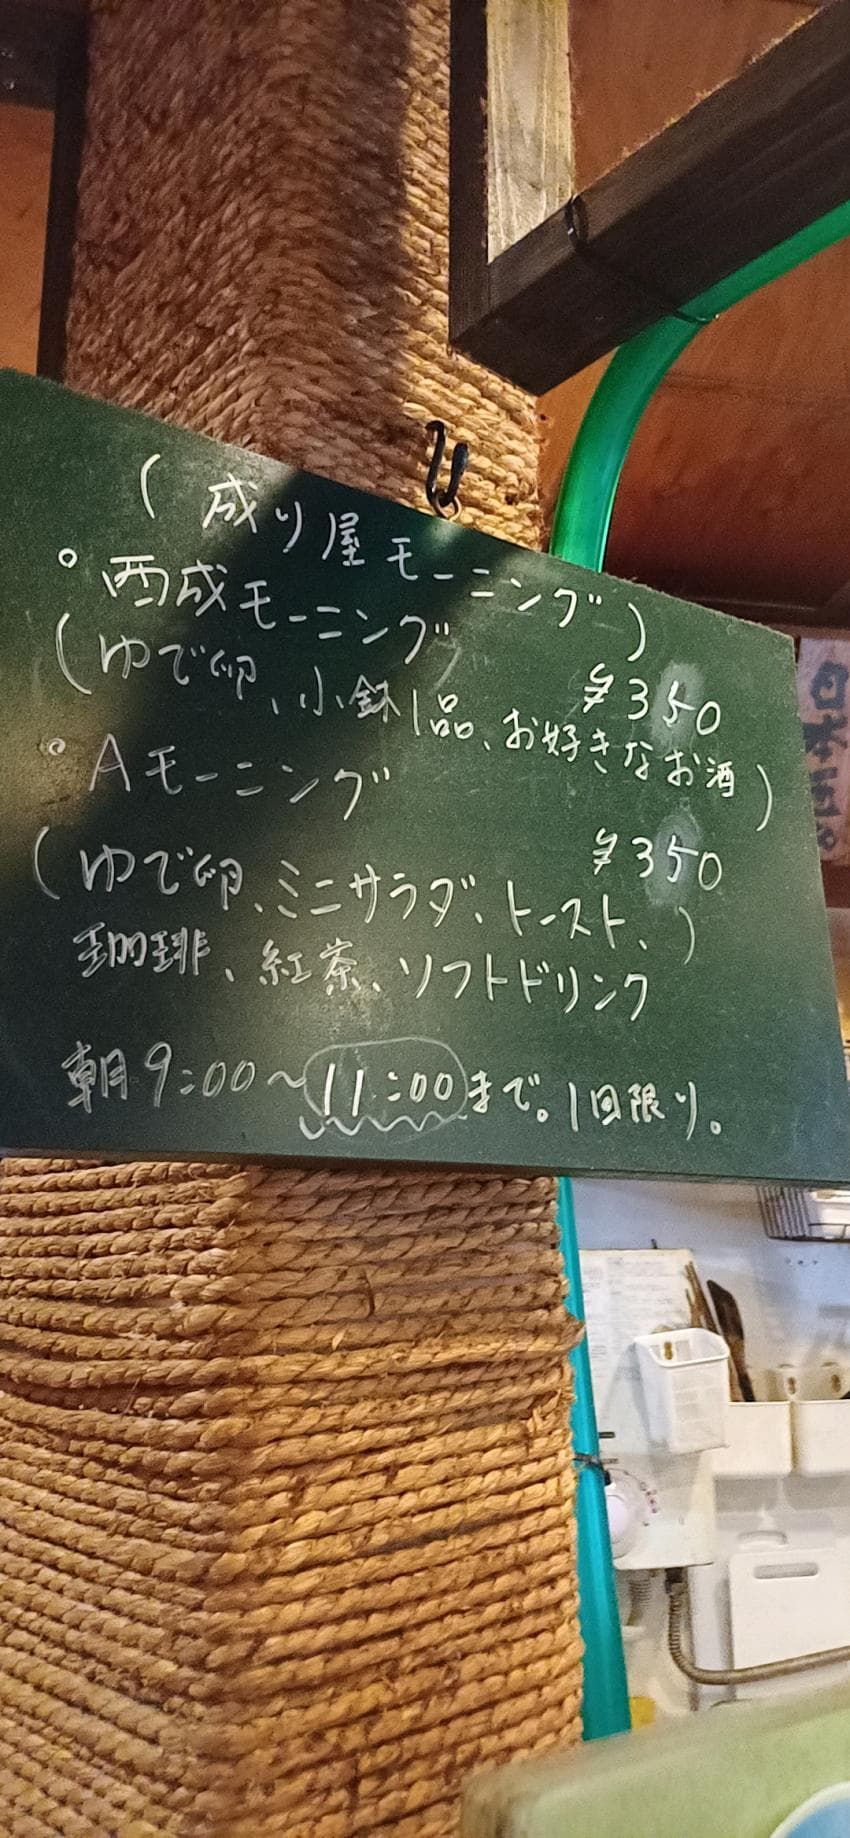 (成り屋モーニング)
°西成モーニング ¥350
(ゆで卵、小鉢1品、お好きなお酒)
°Aモーニング ¥350
(ゆで卵、ミニサラダ、トースト、)
珈琲、紅茶、ソフトドリンク
朝9:00〜11:00まで。1回限り。